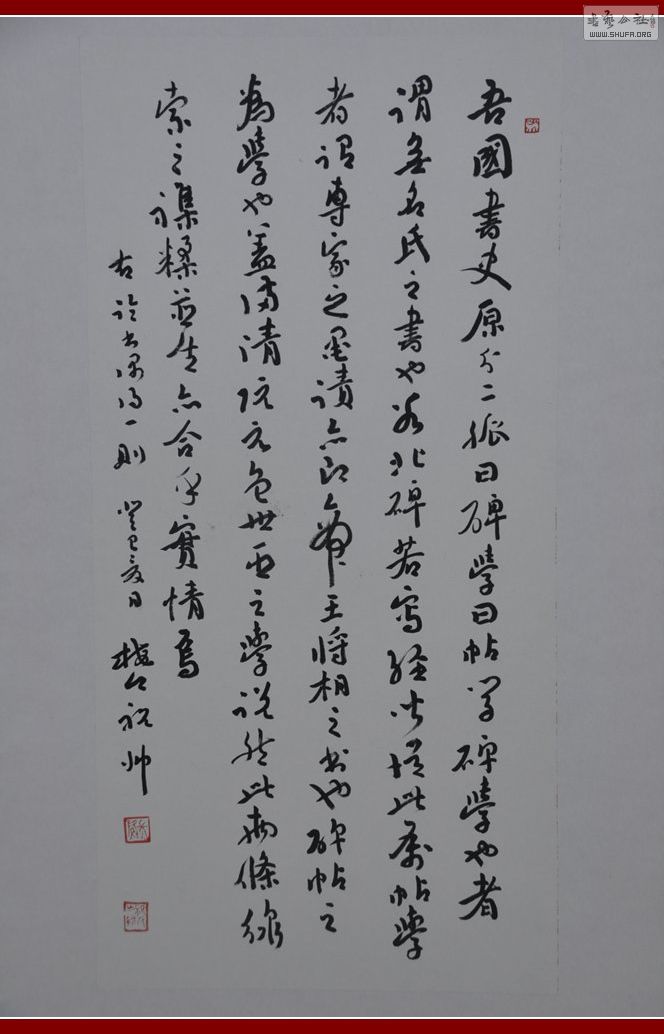 吾國書史原分二脈曰碑學曰帖學碑學也者
謂無名氏之書也若北碑若寫經皆慎此處帖學
者謂專家之墨蹟亦即帝王將相之書也碑帖之
為學也蓋濡清阮元包世臣之學說然此兩條線
索之襍糅並生亦合乎實情焉
右論書偶得一則 癸巳夏日 梅 祝帥
書藝公社
WWW.SHUFA.ORG